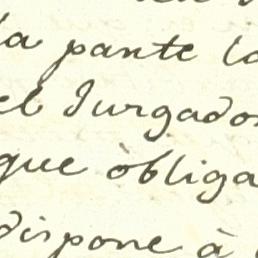 la pante la
el Jurgado
que òbliga
dispone à